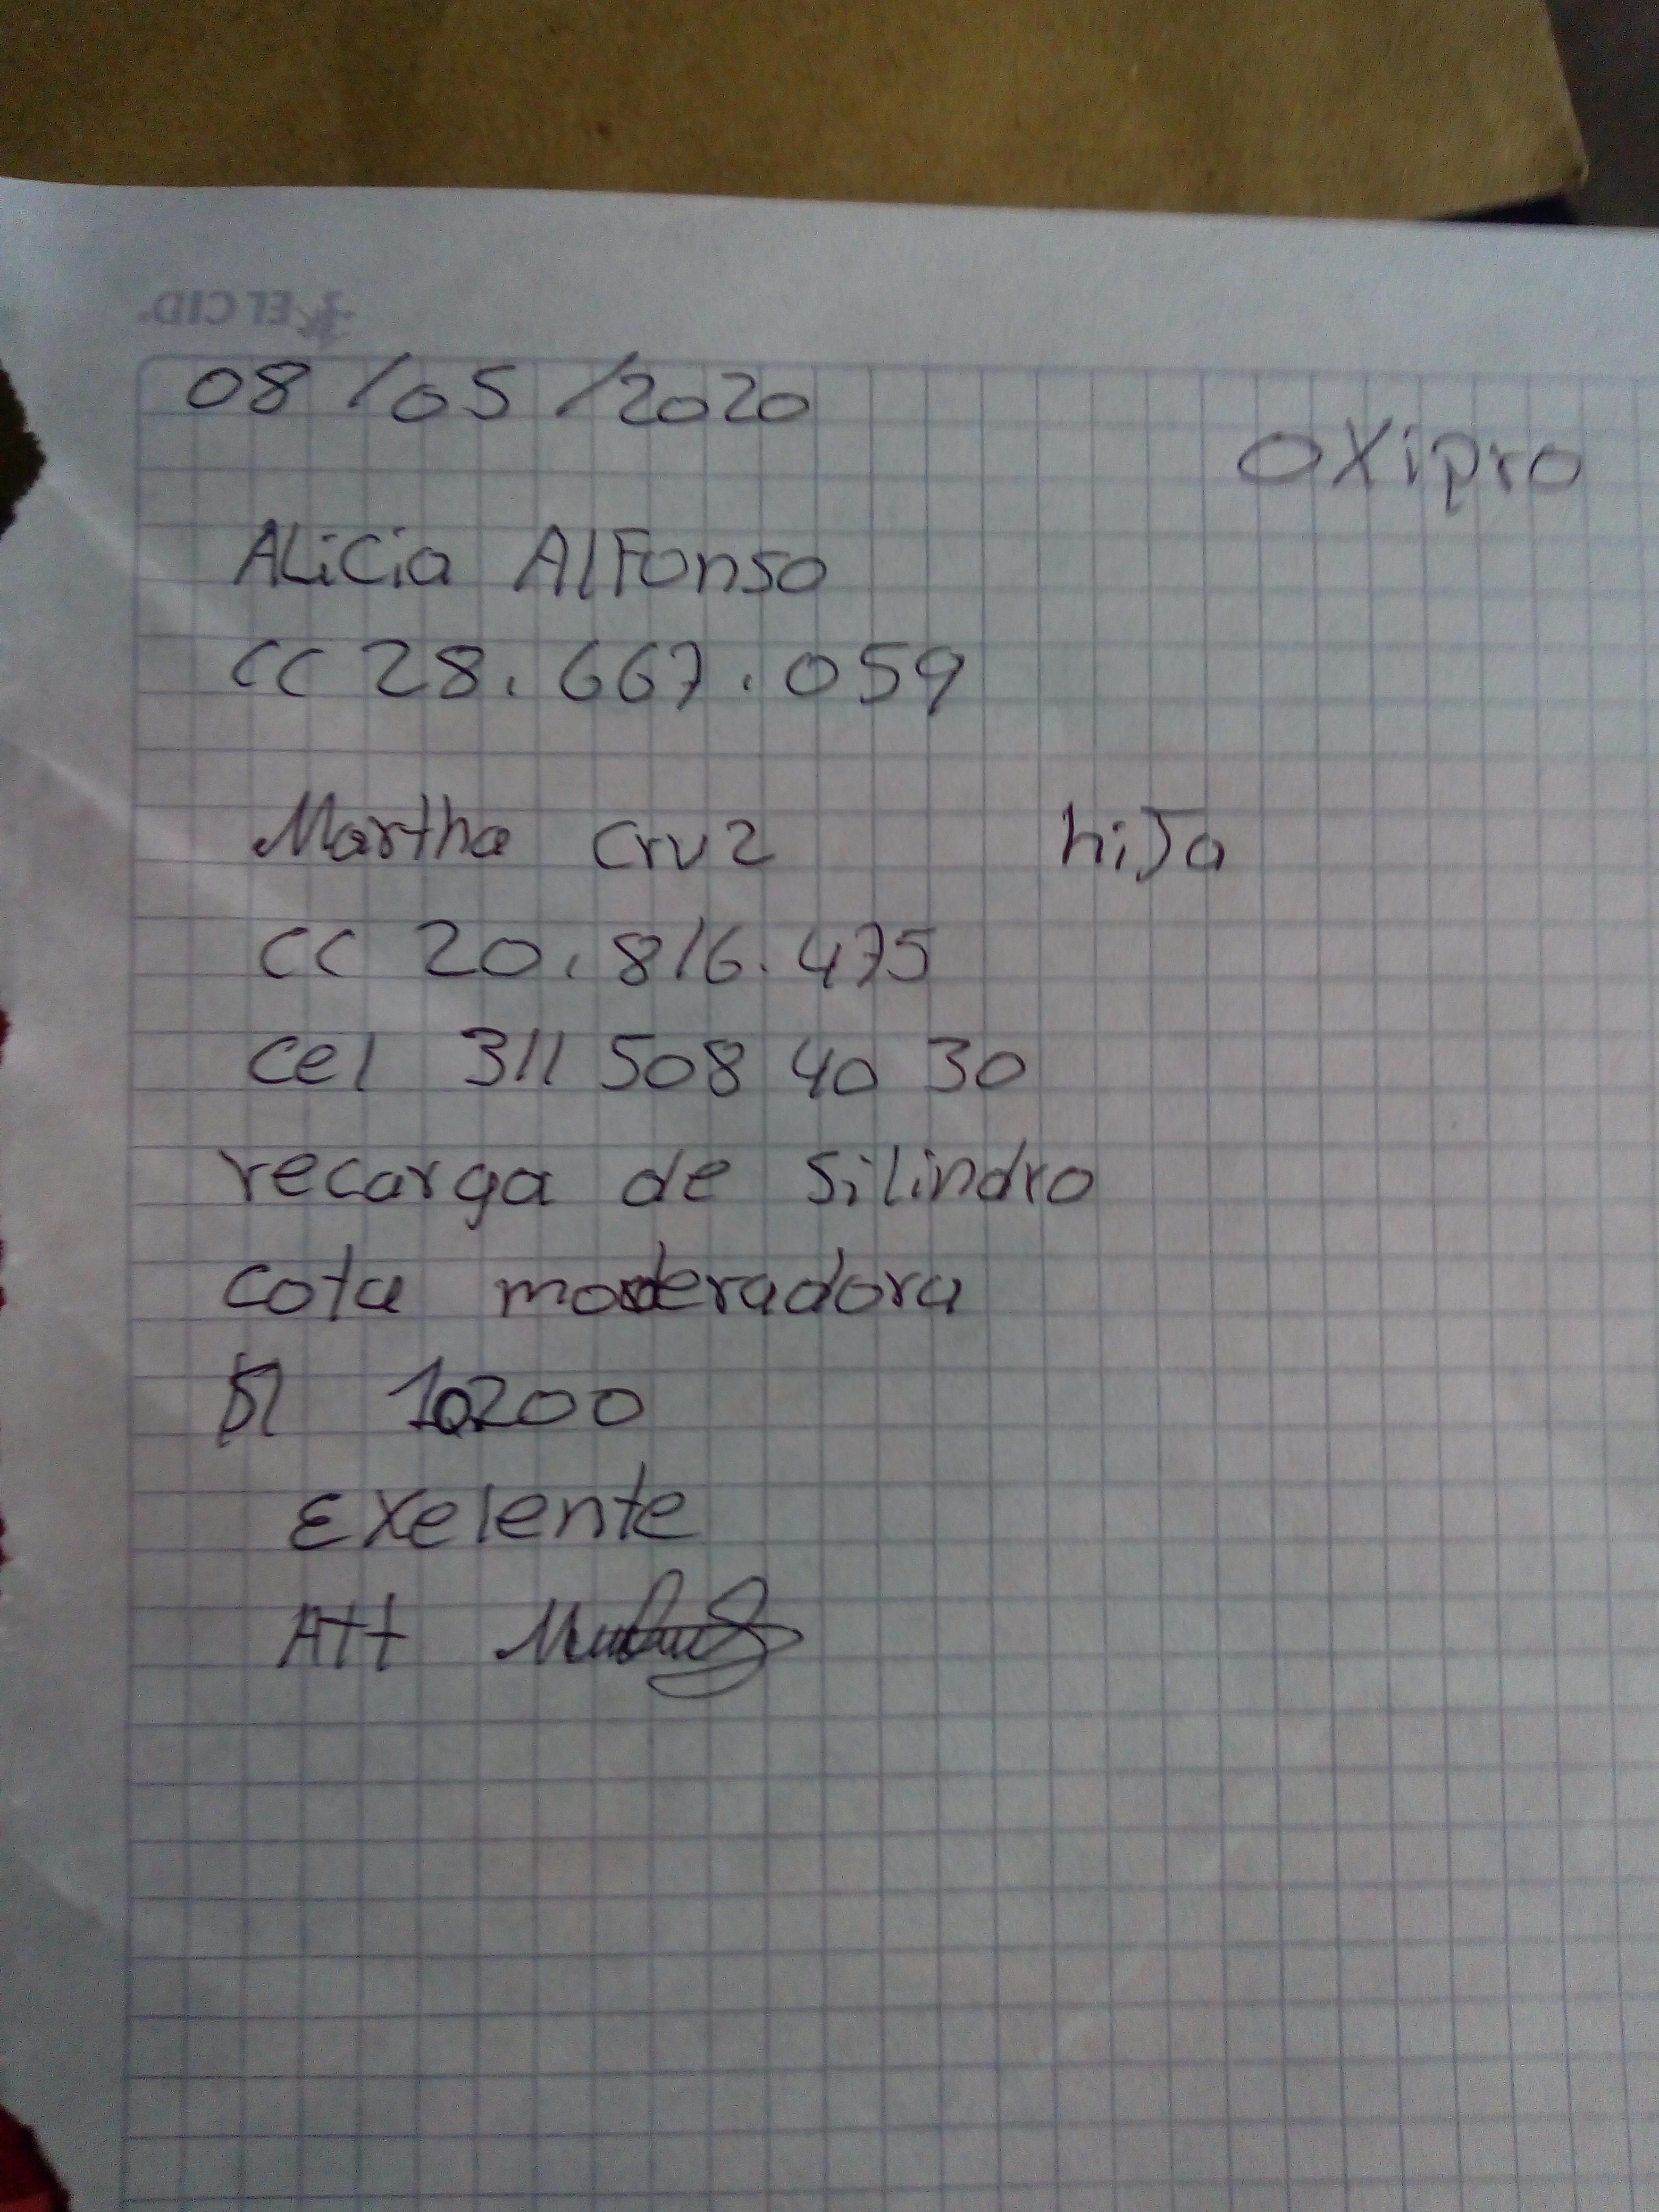 EL CID
08/05/2020
oxipro
Alicia Alfonso
CC 28.667.059
Martha Cruz hija
CC 20.816.475
cel 311 508 40 30
recarga de Silindro
cota moderadora
10200
Exelente
Att